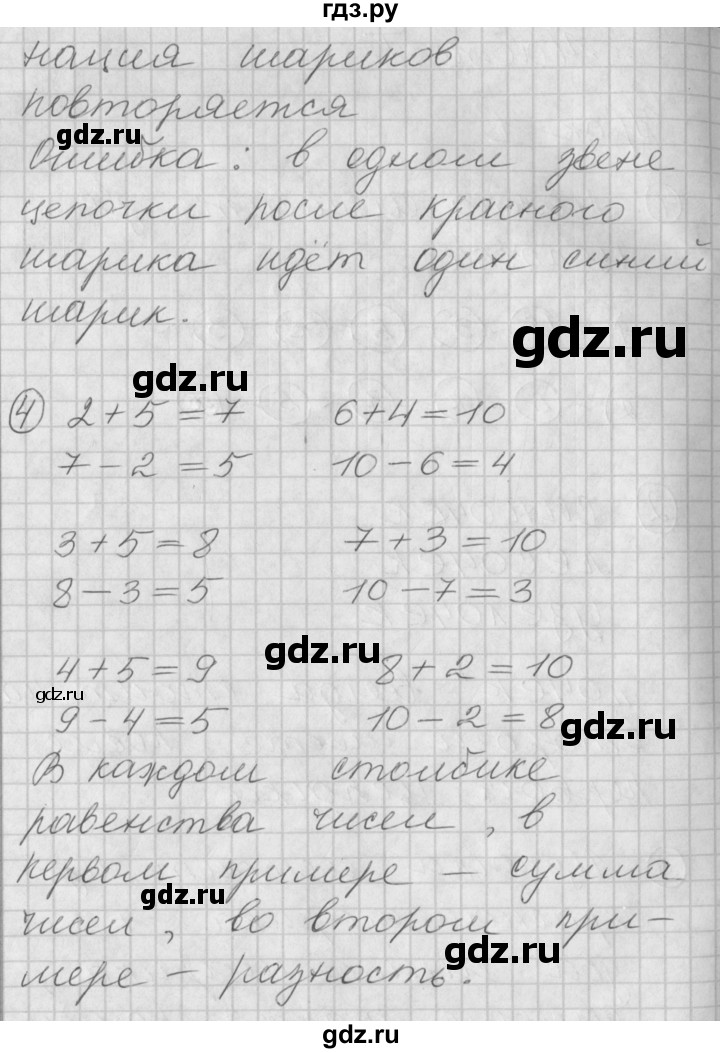 гдз.ру
нация шариков
повторяется
gdz.ru
Ошибка: в одном звене
цепочки после красного
шарика идёт один синий
шарик.
gdz.ru
gdz.ru
④ 2+5=7 6+4=10
7-2=5 10-6=4
3+5=8 7+3=10
8-3=5 10-7=3
gdz.ru
4+5=9 8+2=10
gdz.ru
9-4=5 10-2=8
gdz.ru
В каждом столбике
равенства чисел, в
первом примере – сумма
gdz.ru
чисел, во втором при-
gdz.ru
мере – разность.
gdz.ru